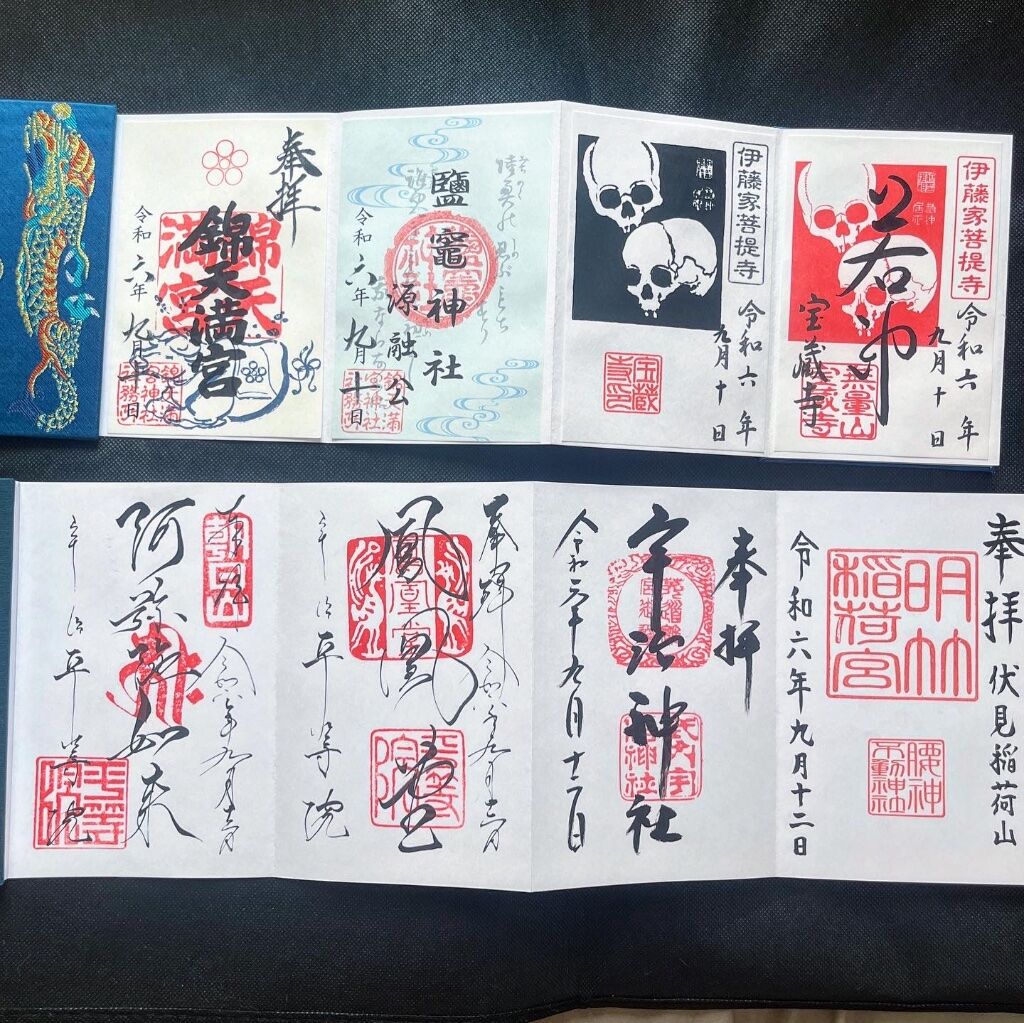 奉拝
錦天満宮
錦天満宮
令和六年九月十日
錦天満宮神社社務所
鹽竈神社
源融公
令和六年九月十日
錦天満宮神社社務所
伊藤家菩提寺
令和六年
九月十日
宝蔵寺印
伊藤家菩提寺
令和六年
九月十日
若冲
宝蔵寺
無量山宝蔵寺
奉拝
伏見稲荷山
明竹稲荷宮
腰神不動神社
令和六年九月十二日
奉拝
宇治神社
令和六年九月十二日
奉拝
令和六年九月十二日
鳳凰堂
平等院
宇治平等院
令和六年九月十二日
阿弥陀如来
平等院
宇治平等院